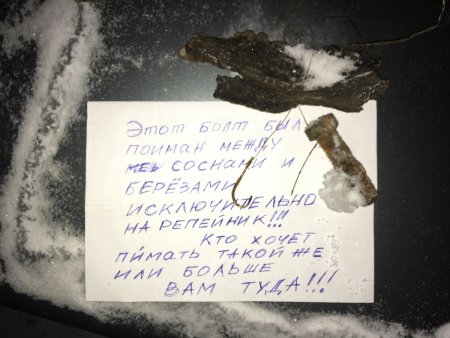 ЭТОТ БОЛТ БЫЛ
ПОЙМАН МЕЖДУ
СОСНАМИ И
БЕРЁЗАМИ
ИСКЛЮЧИТЕЛЬНО
НА РЕПЕЙНИК!!!
КТО ХОЧЕТ
ПЙМАТЬ ТАКОЙ ЖЕ
ИЛИ БОЛЬШЕ
ВАМ ТУДА!!!